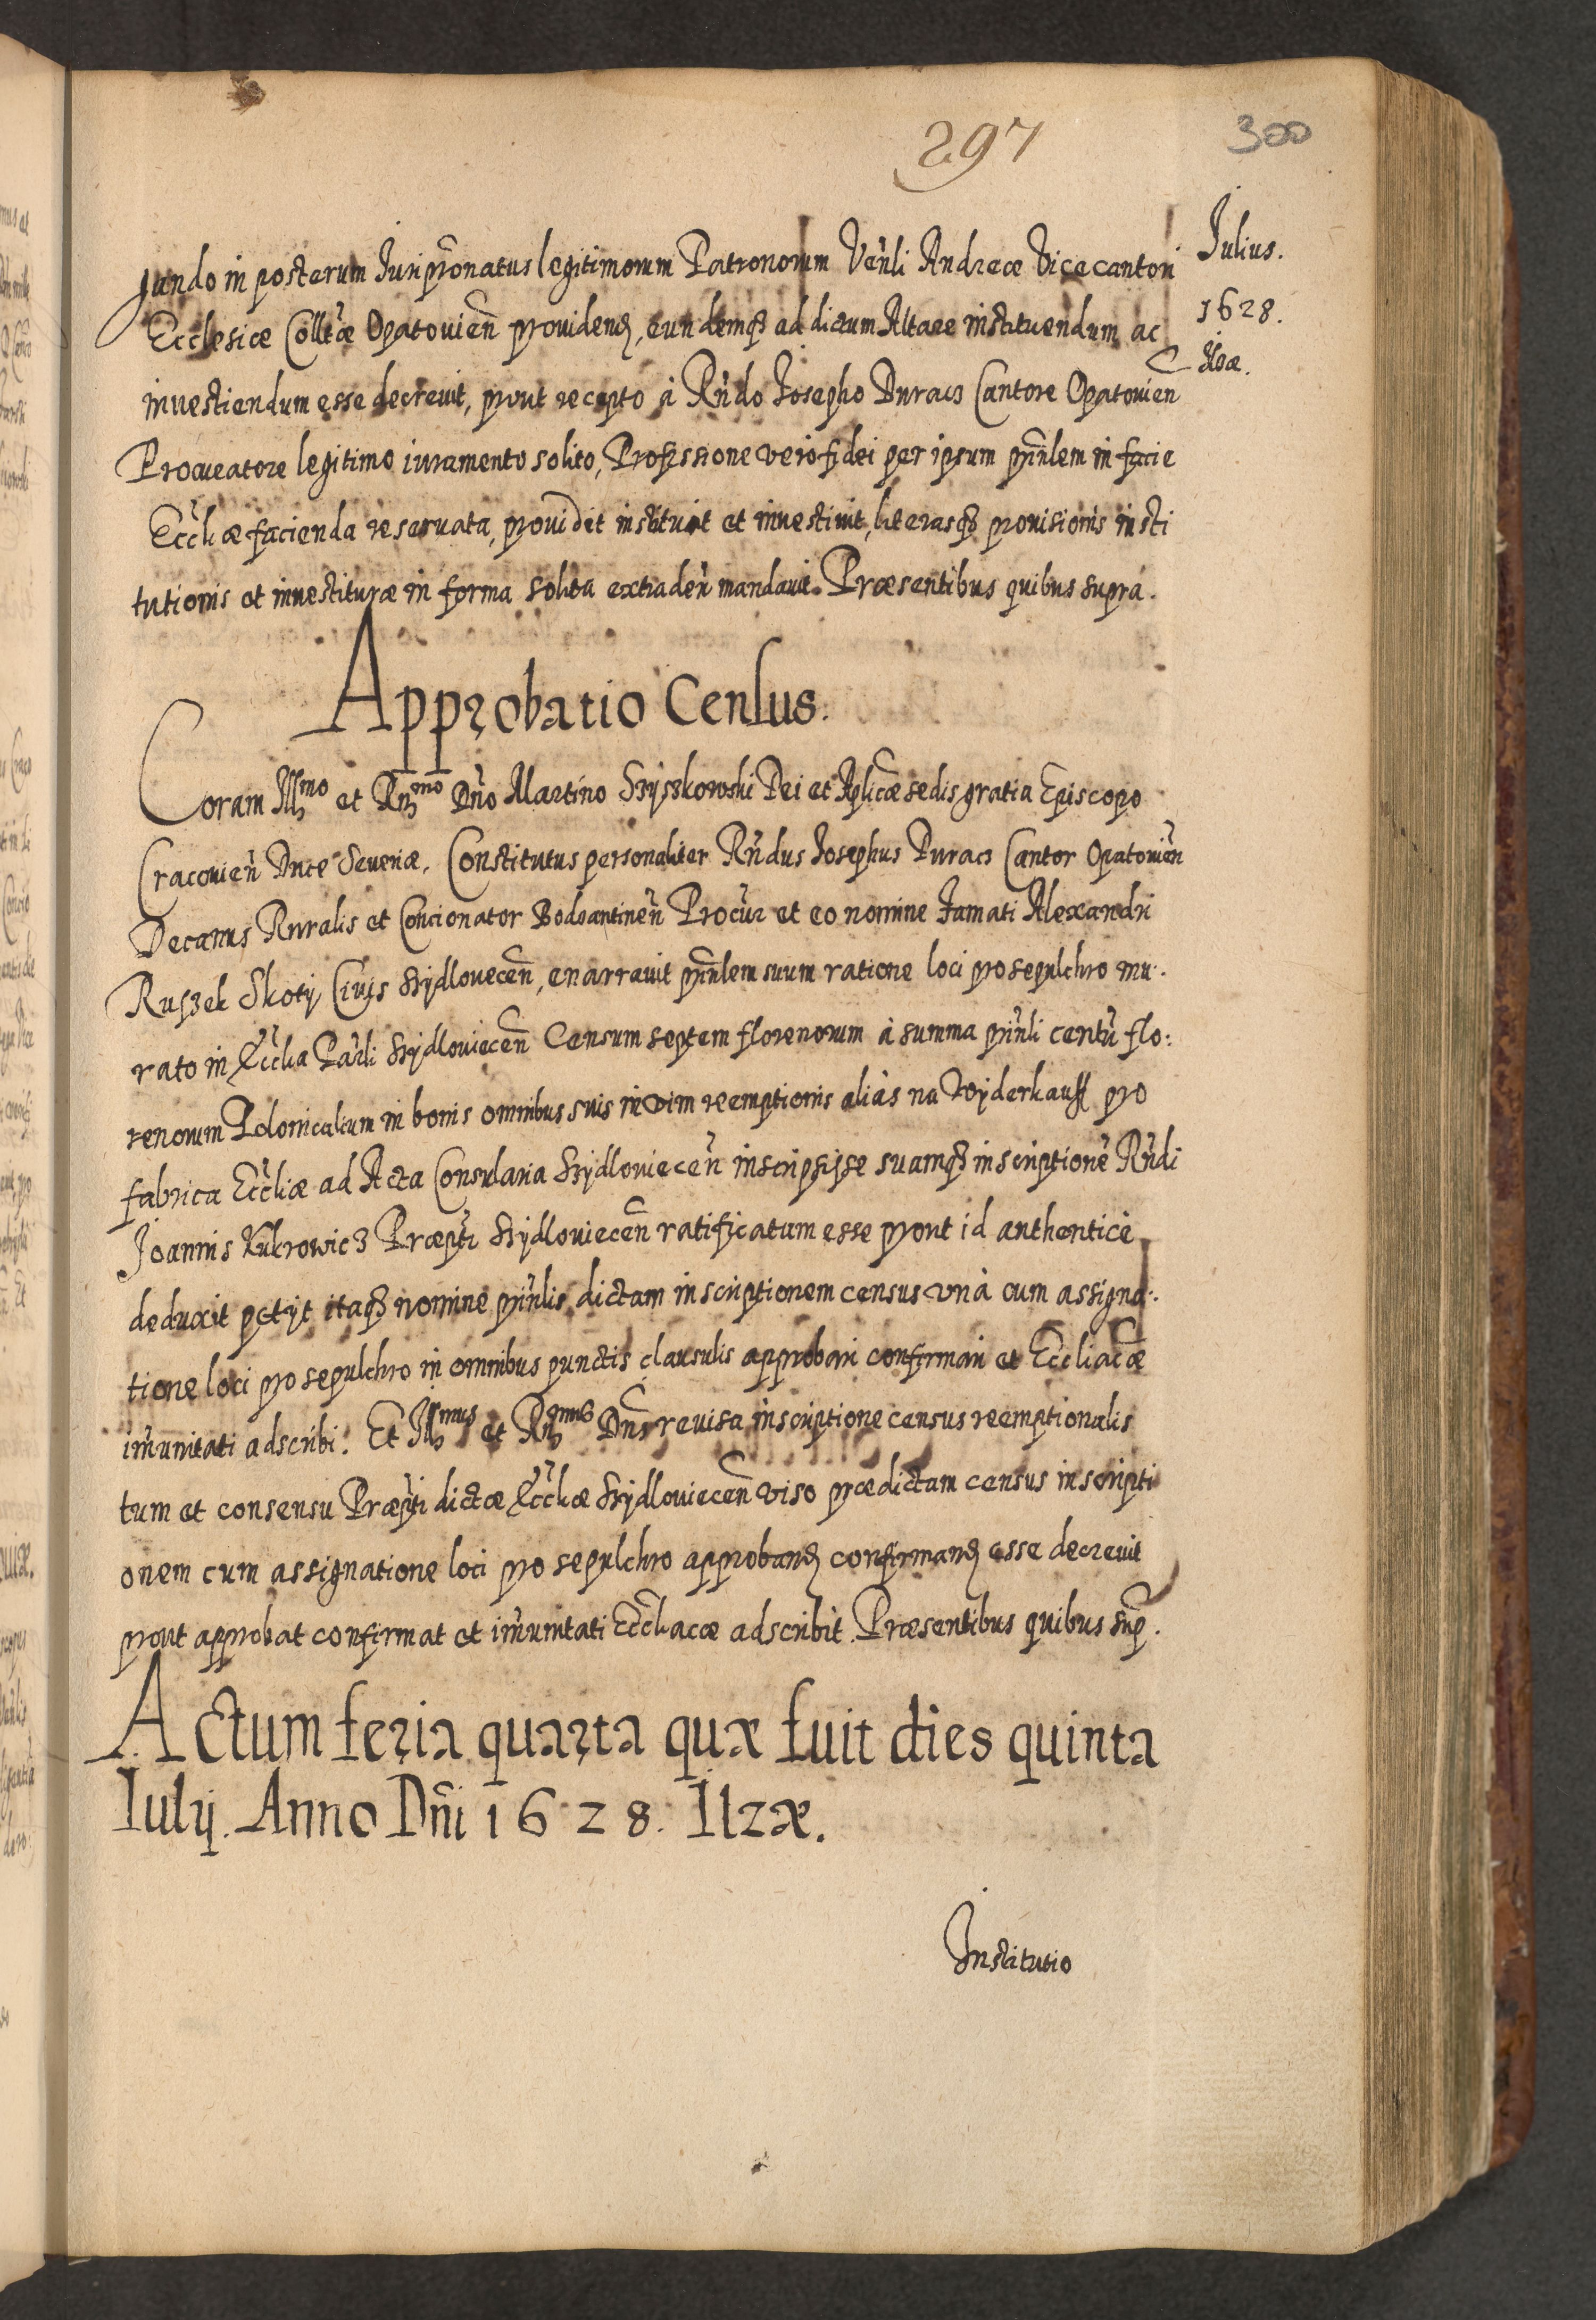 297
300
Julius.
1628.
Ilzæ.
gando in posterum Iurip̃ronatus legitimorum Patronorum Veñli Andreæ Vicecantori
Ecclesiæ Colltæ Opatouien̄ prouidend, eundemq3 ad dictum Altare instituendum ac
inuestiendum esse decreuit, prout recepto à Rñdo Iosepho Duracz Cantore Opatouien
Procuratore legitimo iuramento solito, Professione vero fidei per ipsum prin̄lem in facie
Eccliæ facienda reseruata, prouidit instituit et inuestiuit, literasq3 prouisionis insti
tutionis et inuestituræ in forma solita extraden̄ mandauit. Præsentibus quibus supra.
Approbatio Census.
Coram Illmo et Rndmo Dño Martino Szyszkowski Dei et Aplicæ sedis gratia Episcopo
Cracouien̄ Duce Seueriæ. Constitutus personaliter Rñdus Iosephus Duracz Cantor Opatouien̄
Decanus Ruralis et Concionator Bodzantinen̄ Procur et eo nomine Famati Alexandri
Ruszek Skoty Ciuis Szydlouecen̄, enarrauit prin̄lem suum ratione loci pro sepulchro mu.
rato in Ecclia Parli Szydlouiecen̄ Censum septem florenorum à summa prin̄li centū flo:
renorum Polonicalium in bonis omnibus suis in vim reemptionis aliàs na Wyderkauff pro
fabrica Eccliæ ad Acta Consularia Szydlouiecen̄ inscripsisse suamq3 inscriptionē Rñdi
Ioannis Kukrowicz Præpti Szydlouiecen̄ ratificatum esse prout id authenticè
deduxit petyt itaq3 nomine prin̄lis dictam inscriptionem census vnà cum assigna:
tione loci pro sepulchro in omnibus punctis clausulis approbari confirmari et Eccliacæ
im̄unitati adscribi. Et Illmus et Rndmus Dñs reuisa inscriptione census reemptionalis
tum et consensu Præpti dictæ Eccliæ Szydlouiecen̄ viso prædictam census inscripti
onem cum assignatione loci pro sepulchro approband confirmand esse decreuit
prout approbat confirmat et im̄unitati Eccliacæ adscribit. Præsentibus quibus sup.
Actum feria quarta quæ fuit dies quinta
Iulij. Anno Dñi 1628. Ilzæ.
Institutio